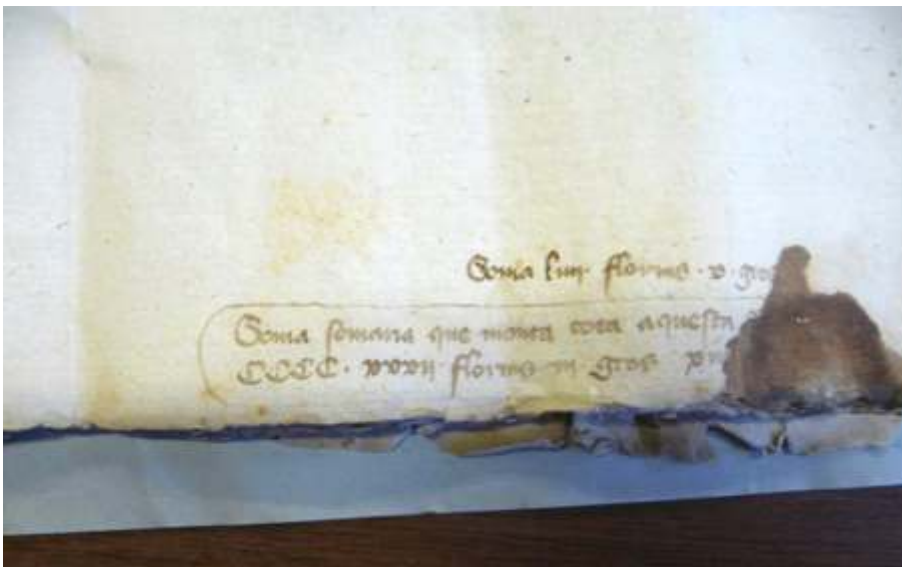 Soma liiii florins · v · gros
Soma somaria que monta tota aquesta
CCCC · xxxii florins iii gros